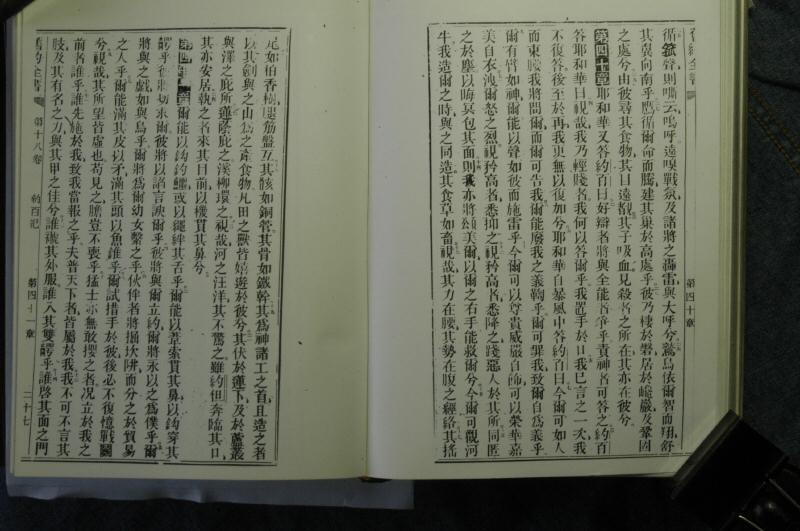 舊約全書
第四十章
循
聲則嘶云嗚呼遠嗅戰氛及諸將之轟雷與大呼兮鷲鳥依爾智而翔舒
其冀向南乎鷹循爾命而騰建其巢於高處乎彼乃棲於磐居於巉巖及鞏固
之處兮由彼尋其食物其目遠覩其子吸血見殺者之所在其亦在彼兮
第四十章耶和華又答約百曰好辯者將與全能者爭乎責神者可答之約百
答耶和華曰視哉我乃輕賤者我何以答爾乎我置手於口我已言之一次我
不復答後至於再我更無以復加兮耶和華自暴風中答約百曰今爾可如人
而束腰我將問爾而爾可告我爾能廢我之義鞫乎爾可罪我致爾自為義乎
爾有臂如神爾能以聲如彼而施雷乎今爾可以尊貴威嚴自飾可以榮華嘉
美自衣洩爾怒之烈視矜高者悉抑之視矜高者悉降之踐惡人於其所同匿
之於塵以晦冥包其面則我亦將頌美爾以爾之右手能救爾兮今爾可觀河
牛我造爾之時與之同造其食草如畜視哉其力在腰其勢在腹之經絡其搖
尾如柏香樹腿筋盤互其骸如銅管其骨如鐵幹其為神諸工之首且造之者
以其劍與之山為之產食物凡田之獸皆嬉遊於彼兮其伏於蓮下及於蘆叢
與澤之庇所蓮蔭庇之溪柳環之視哉河之汪洋其不驚之雖約但奔臨其口
其亦安居執之者來其目前以機貫其鼻兮
爾能以鈎鈎鱷或以繩絆其舌乎爾能以葦索貫其鼻以鈎穿其
腭乎彼將切求爾彼將以諂言諛爾乎彼將與爾立約爾將永以之為僕乎爾
將與之戲如與鳥乎爾將為爾幼女繫之乎伙伴者將掘坎阱而分之於貿易
之人乎爾能滿其皮以矛滿其頭以魚鏢乎爾試措手於彼後必不復憶戰鬭
兮視哉其所望皆虛也苟見之膽豈不喪乎猛士亦無敢攖之者況立於我之
前者誰乎誰先施於我致我當報之乎夫普天下者皆屬於我我不可不言其
肢及其有名之力與其甲之佳兮誰褫其外服誰入其雙腭乎誰啓其面之門
舊約全書
第十八卷
約百記
第四十一章
二十七